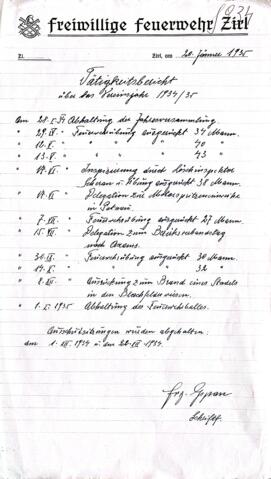 1934
freiwillige feuerwehr Zirl
Zl. Zirl, am 20. Jänner 1935
Tätigkeitsbericht
über das Vereinsjahr 1934/35
Am 28. I. 34 Abhaltung der Jahresversammlung
" 29. IV. " Feuerwehrübung ausgerückt 34 Mann.
" 10. V. " " " 40 "
" 13. V. " " " 43 "
" 19. VI. " Inspizierung durch Löschinspektor
u. Übung ausgerückt 38 Mann.
" " Delegation zur Motorspritzenweihe
in
" 7. VII. " Feuerwehrübung ausgerückt 27 Mann.
" 15. VII. " Delegation zum Bezirksverbandstag
nach Axams.
" 30. " Feuerwehrübung ausgerückt 30 Mann.
" " " " 32 "
" 8. " Ausrückung zum Brand eines Stadels
in den
" 1. I. 1935 Abhaltung des Feuerwehrballes.
Ausschußsitzungen wurden abgehalten.
am 1. 1934 und am 22. 1934.
Schriftf.